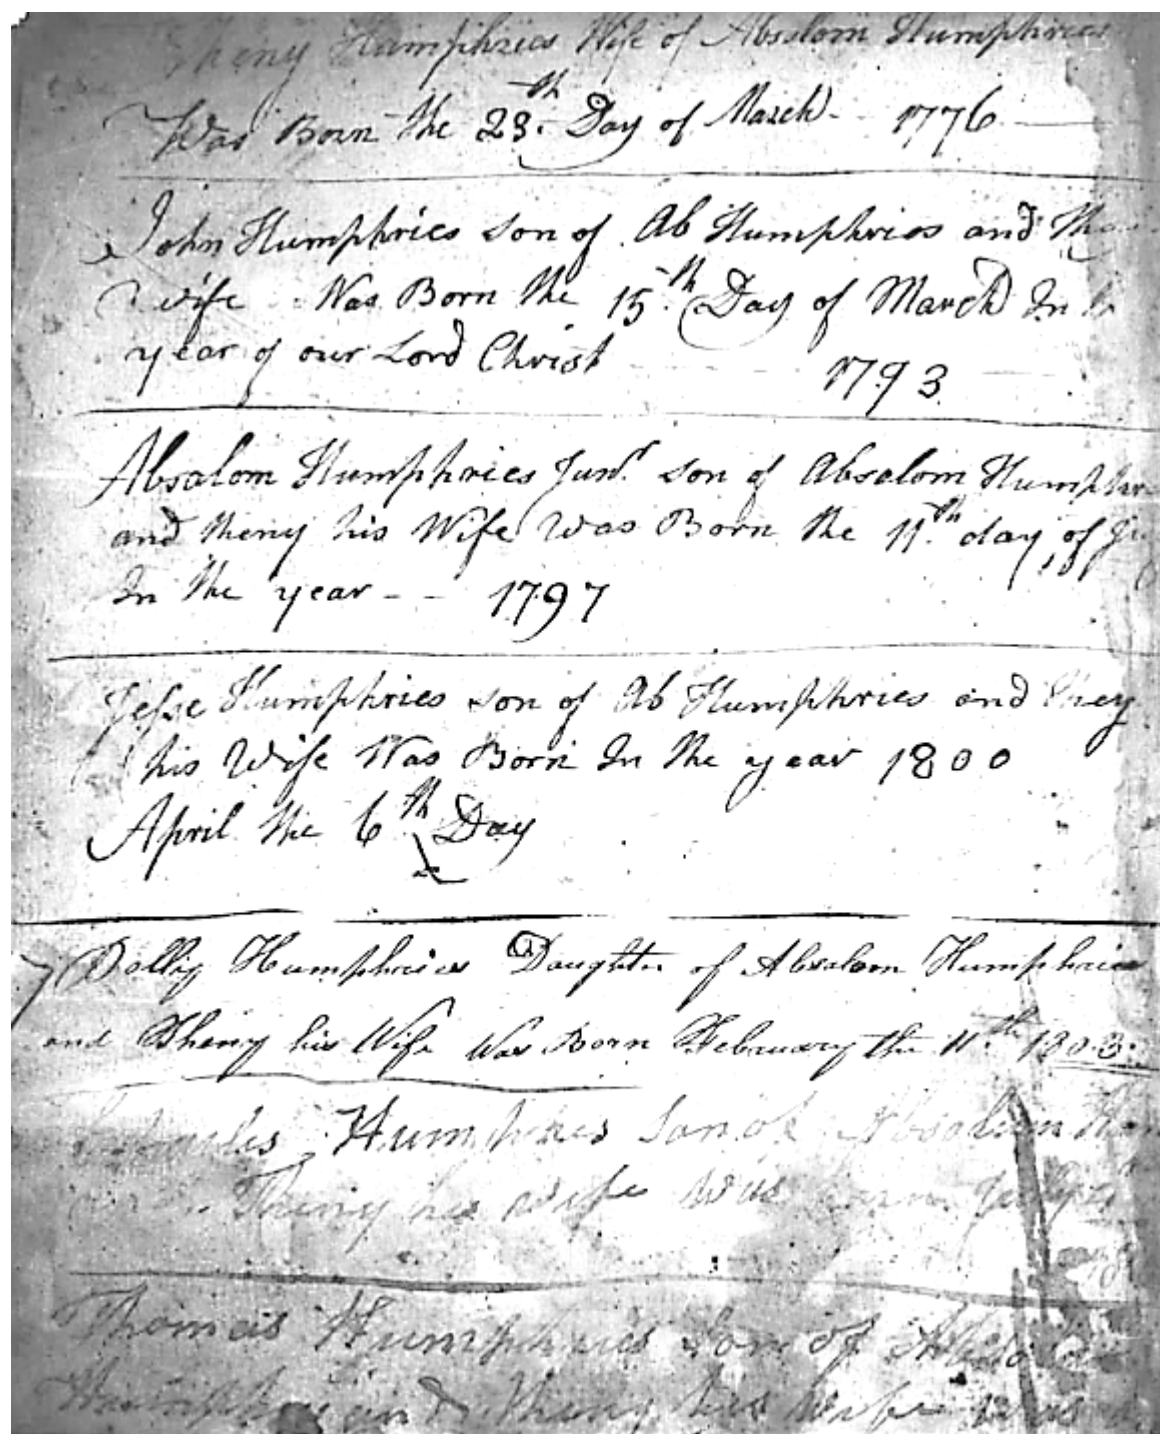 Theny Humphries Wife of Absalom Humphries
Was Born the 28th Day of March - 1776
John Humphries son of Ab Humphries and
wife Was Born the 15th Day of March In
year of our Lord Christ 1793
Absalom Humphries Junr son of Absalom
and theny his Wife Was Born the 11th day of
In the year - - 1797
Jesse Humphries son of Ab Humphries and
his Wife Was Born In the year 1800
April the 6th Day
Dolly Humphries Daughter of Absalom Humphries
and Theny his Wife Was Born February the 11th 1803.
Humphries Son of Absalom
Theny his wife was born
Thomas Humphries Son of
Humphries and theny his wife was